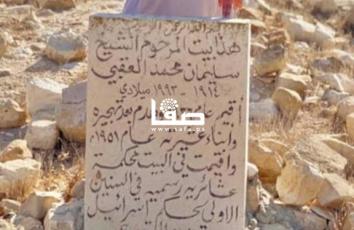 هذا بيت المرحوم الشيخ
سليمان محمد العقبي
١٩١٤ - ١٩٩٣ ميلادي
أقيم عام
بعد تهجيره
وابناء عام ١٩٥١
واقيمت في البيت محكمة
عشائرية رسمية في السنين
الاولى لحكم اسرائيل
صفا
www.safa.ps